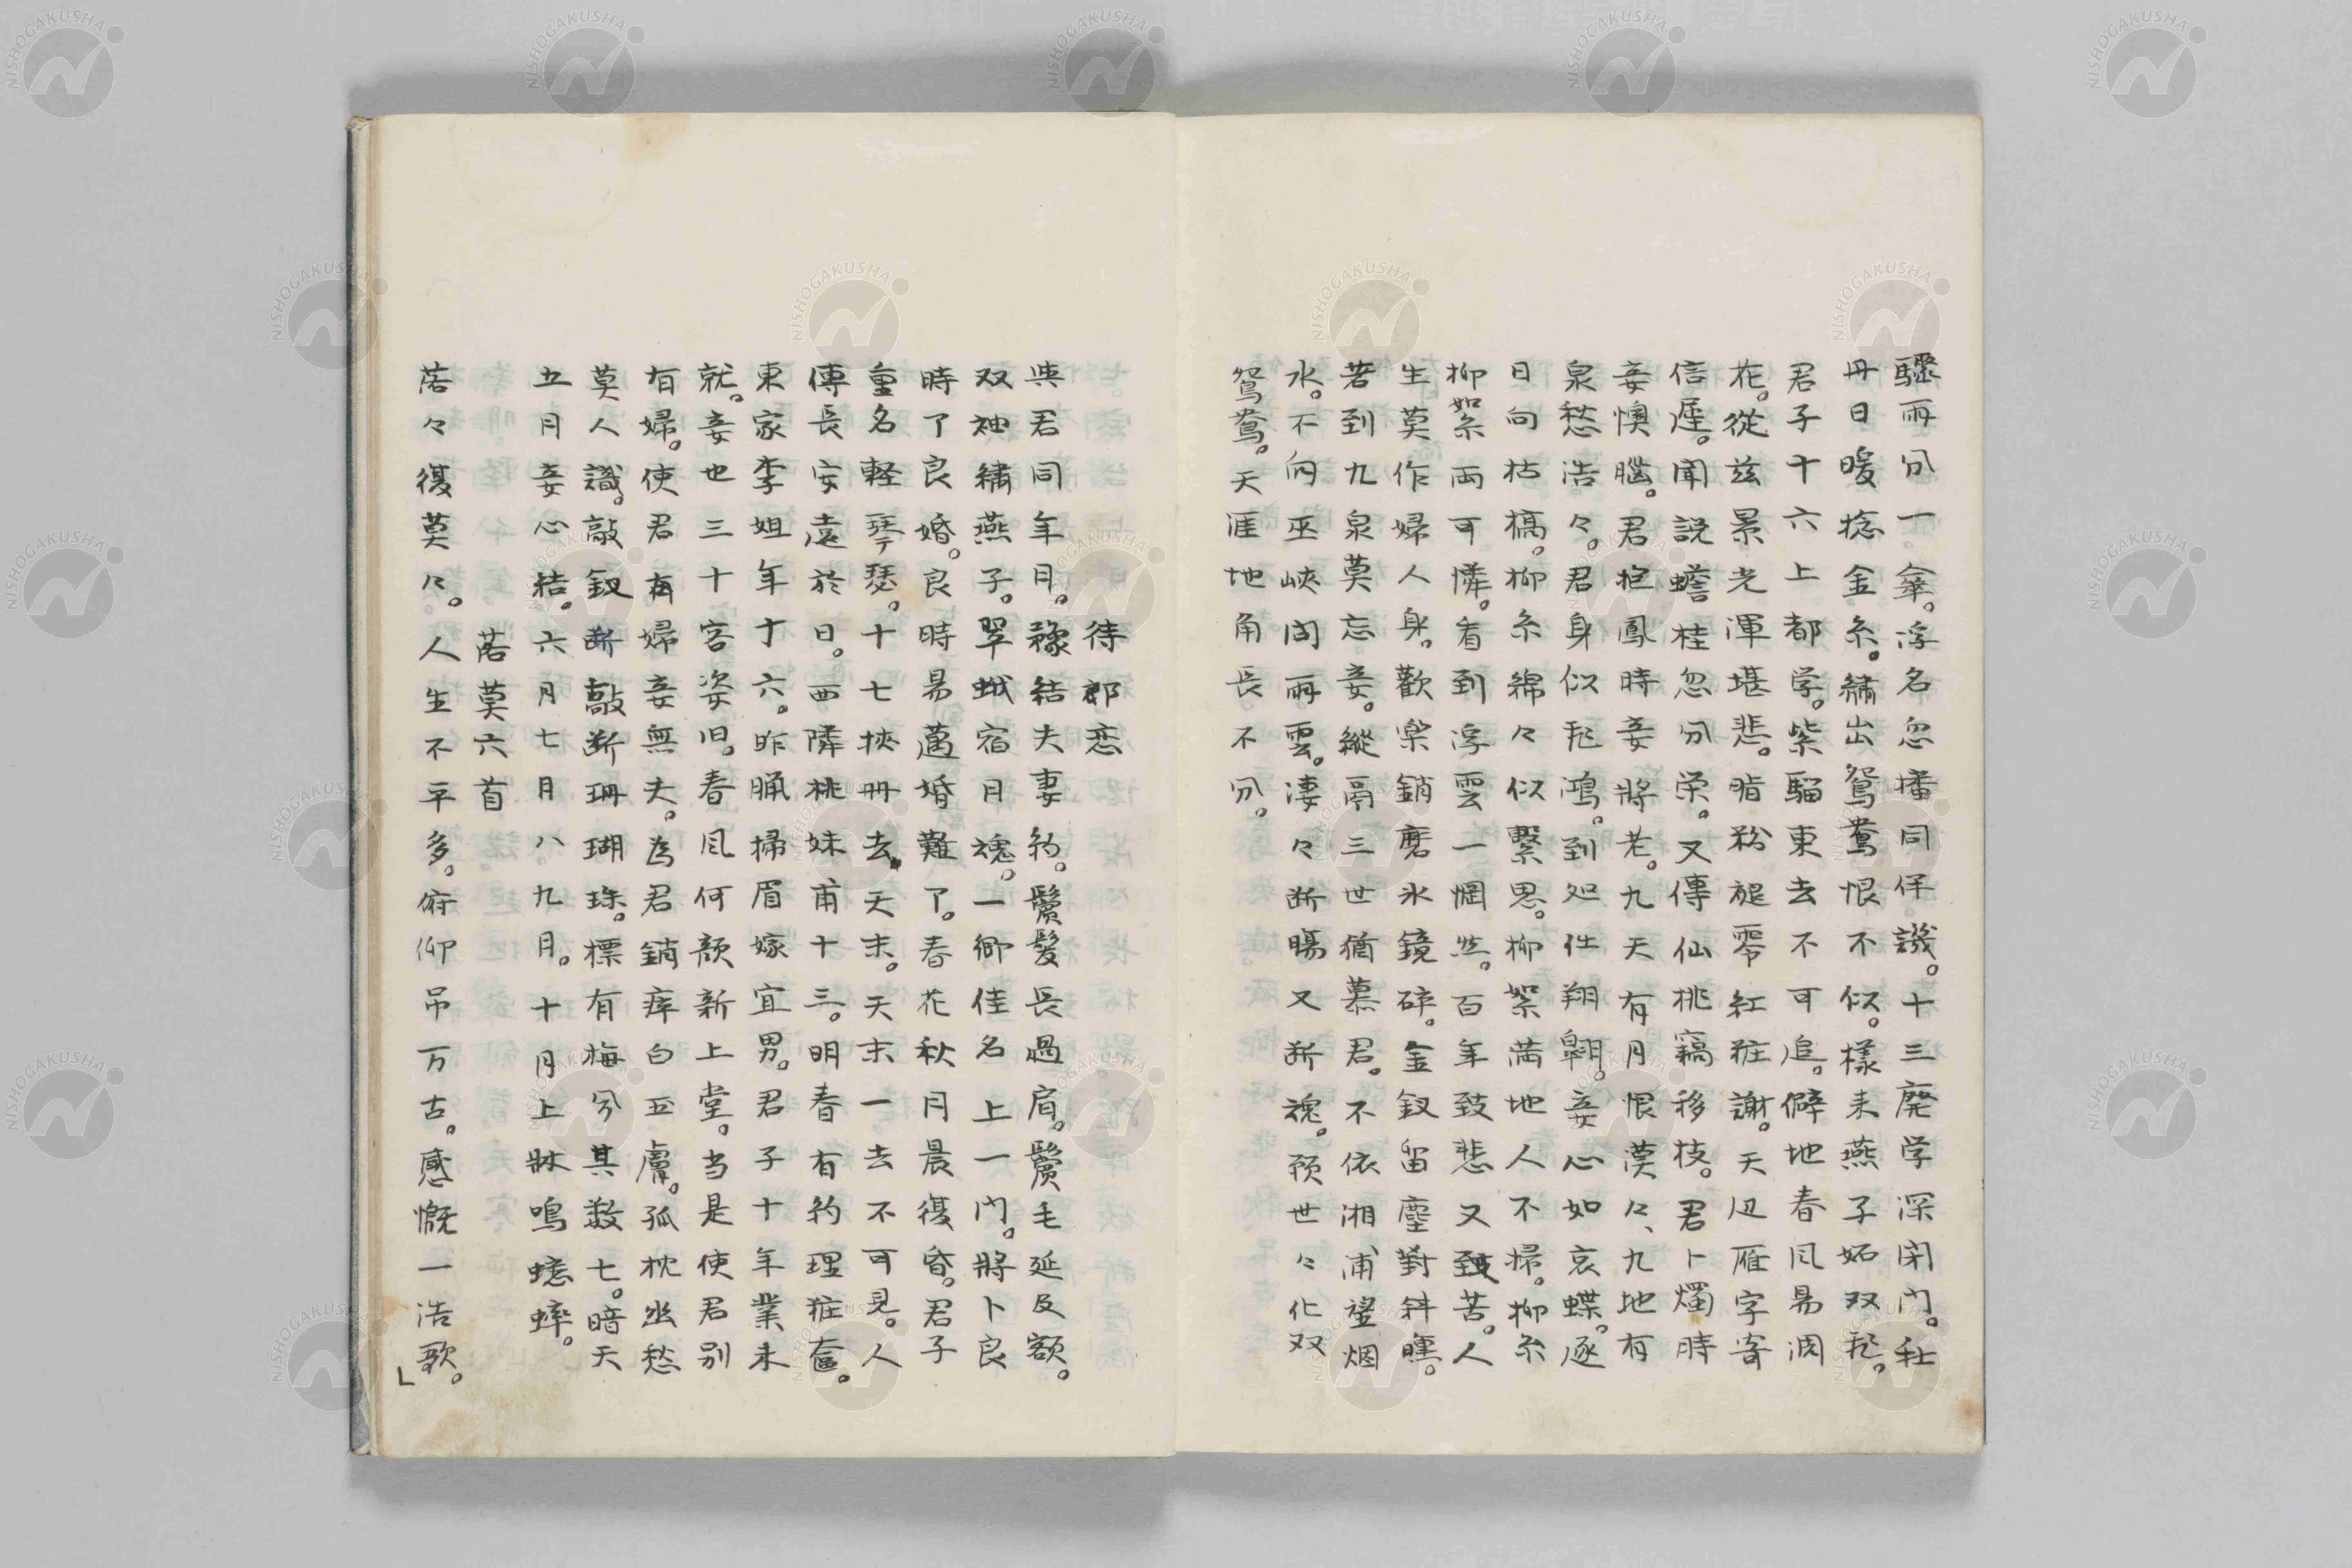 驟雨分一傘。浮名忽播同伴譏。十三廃学深閉門。秋
丹日暖捻金糸。繍出鴛鴦恨不似。様来燕子妬双飛。
君子十六上都学。紫騮東去不可追。僻地春風易凋
花。従茲景光渾堪悲。脂粉褪零紅粧謝。天辺雁字寄
信遅。聞説蟾桂忽分栄。又傳仙桃竊移枝。君卜燭時
妾懊悩。君抱鳳時妾將老。九天有月恨漠々、九地有
泉愁浩々。君身似飛鴻。到処任翔翺。妾心如哀蝶。逐
日向枯槁。柳糸綿々似繋思。柳絮満地人不掃。柳糸
柳絮両可憐。看到浮雲一惘然。百年致悲又致苦。人
生莫作婦人身。歡楽銷磨氷鏡砕。金釵留塵對斜曛。
若到九泉莫忘妾。縦鬲三世猶慕君。不依湘浦望烟
水。不向巫峡問雨雲。凄々断腸又断魂。預世々化双
鴛鴦。天涯地角長。不分。
待郎恋
与君同年月。豫結夫妻約。鬢髪長過肩。鬢毛延及額。
双袖繍燕子。翠蛾宿月魂。一郷佳名上一門。將卜良
時了良婚。良時易邁婚難了。春花秋月晨復昏。君子
重名軽琴瑟。十七挾冊去天末。天末一去不可見。人
傳長安遠於日。西隣桃妹甫十三。明春有約理粧奩。
東家李姐年十六。昨臈掃眉嫁宜男。君子十年業未
就。妾也三十容姿旧。春風何顔新上堂。当是使君別
有婦。使君有婦妾無夫。為君銷瘁白玉膚。孤枕幽愁
莫人識。敲釵断敲断珊瑚珠。標有梅兮其数七。暗天
五月妾心結。六月七月八九月。十月上牀鳴蟋蟀。
落莫六首
落々復莫々。人生不平多。俯仰吊万古。感慨一浩歌。